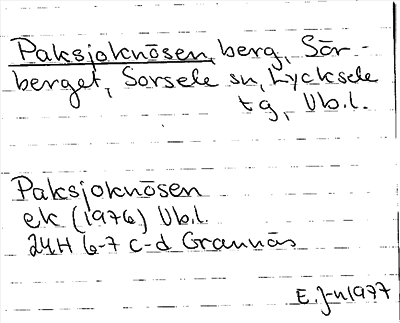 Paksjoknösen, berg, Sör-
berget, Sorsele sn, Lycksele
tg, Vb.l.
Paksjoknösen
ek (1976) Vb.l.
24H 6-7 c-d Grannäs
E. J-n 1977